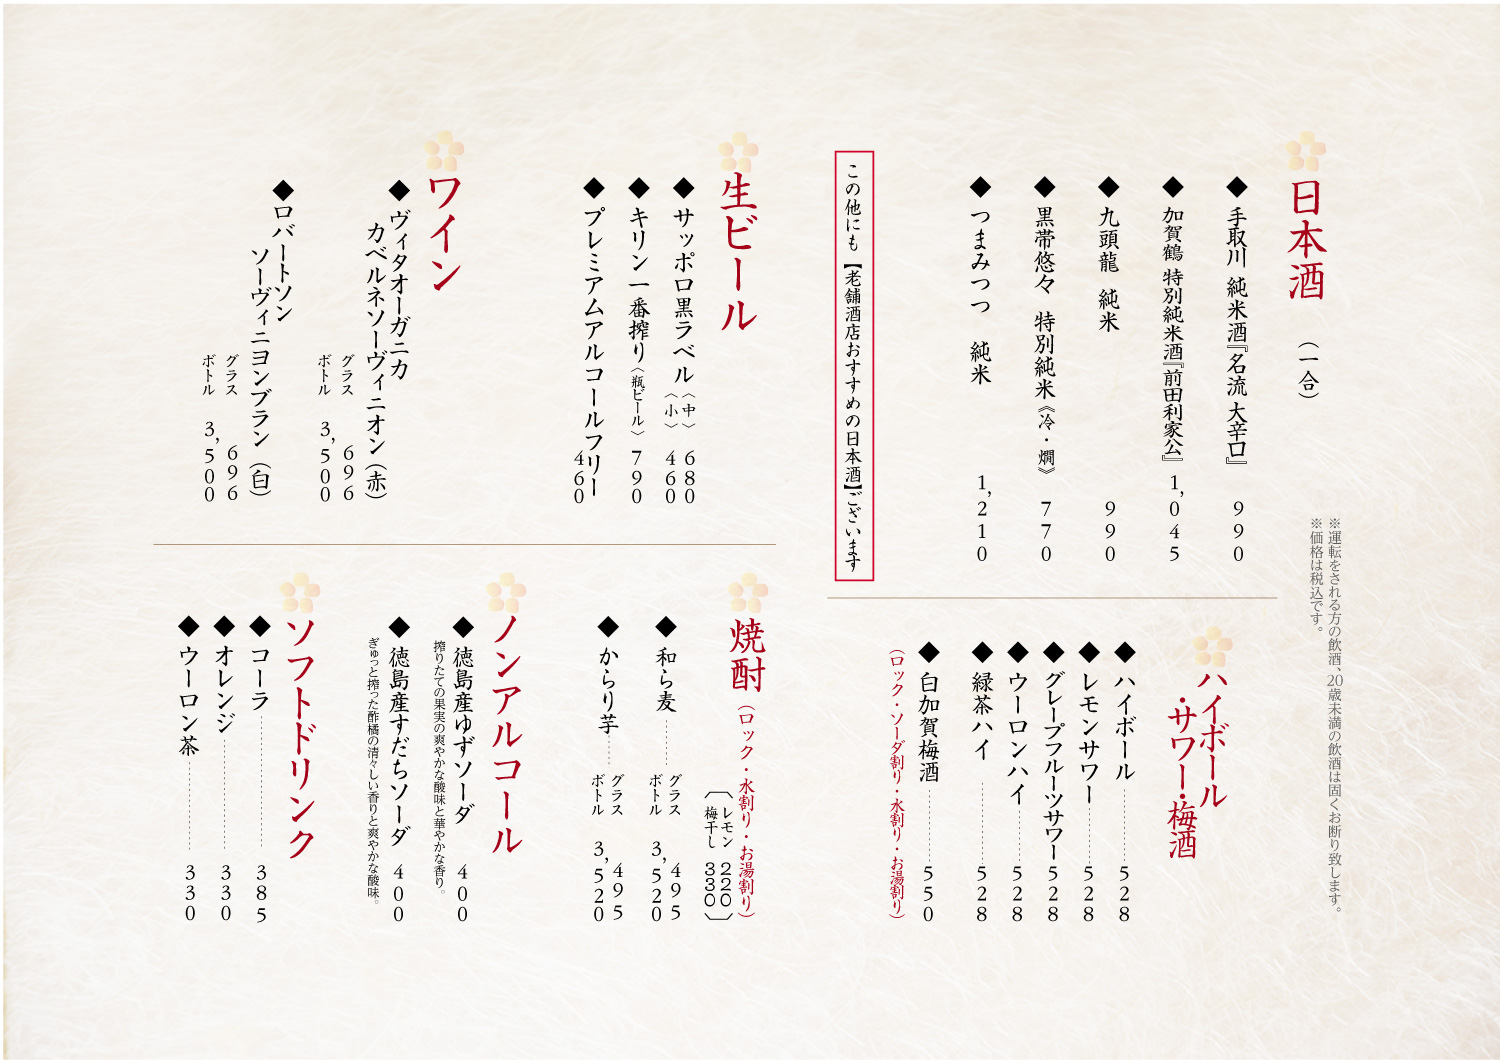 日本酒 (一合)
◆手取川 純米酒『名流 大辛口』 990
◆加賀鶴 特別純米酒『前田利家公』 1,045
◆九頭龍 純米 990
◆黒帯悠々 特別純米《冷・燗》 770
◆つまみつつ 純米 1,210
この他にも【老舗酒店おすすめの日本酒】ございます
※運転をされる方の飲酒、20歳未満の飲酒は固くお断り致します。
※価格は税込です。
ハイボール
・サワー・梅酒
◆ハイボール 528
◆レモンサワー 528
◆グレープフルーツサワー 528
◆ウーロンハイ 528
◆緑茶ハイ 528
◆白加賀梅酒 550
(ロック・ソーダ割り・水割り・お湯割り)
生ビール
◆サッポロ黒ラベル〈中〉 680
〈小〉 460
◆キリン一番搾り〈瓶ビール〉 790
◆プレミアムアルコールフリー
460
ワイン
◆ヴィタオーガニカ
カベルネソーヴィニオン(赤)
グラス 696
ボトル 3,500
◆ロバートソン
ソーヴィニヨンブラン(白)
グラス 696
ボトル 3,500
焼酎(ロック・水割り・お湯割り)
〔レモン 220
梅干し 330〕
◆和ら麦 グラス 495
ボトル 3,520
◆からり芋 グラス 495
ボトル 3,520
ノンアルコール
◆徳島産ゆずソーダ 400
搾りたての果実の爽やかな酸味と華やかな香り。
◆徳島産すだちソーダ 400
ぎゅっと搾った酢橘の清々しい香りと爽やかな酸味。
ソフトドリンク
◆コーラ 385
◆オレンジ 330
◆ウーロン茶 330